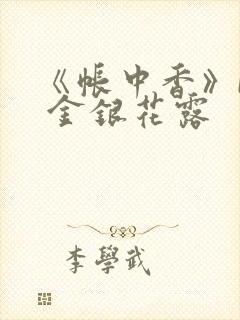 《帳中香》
金銀花露
李學武